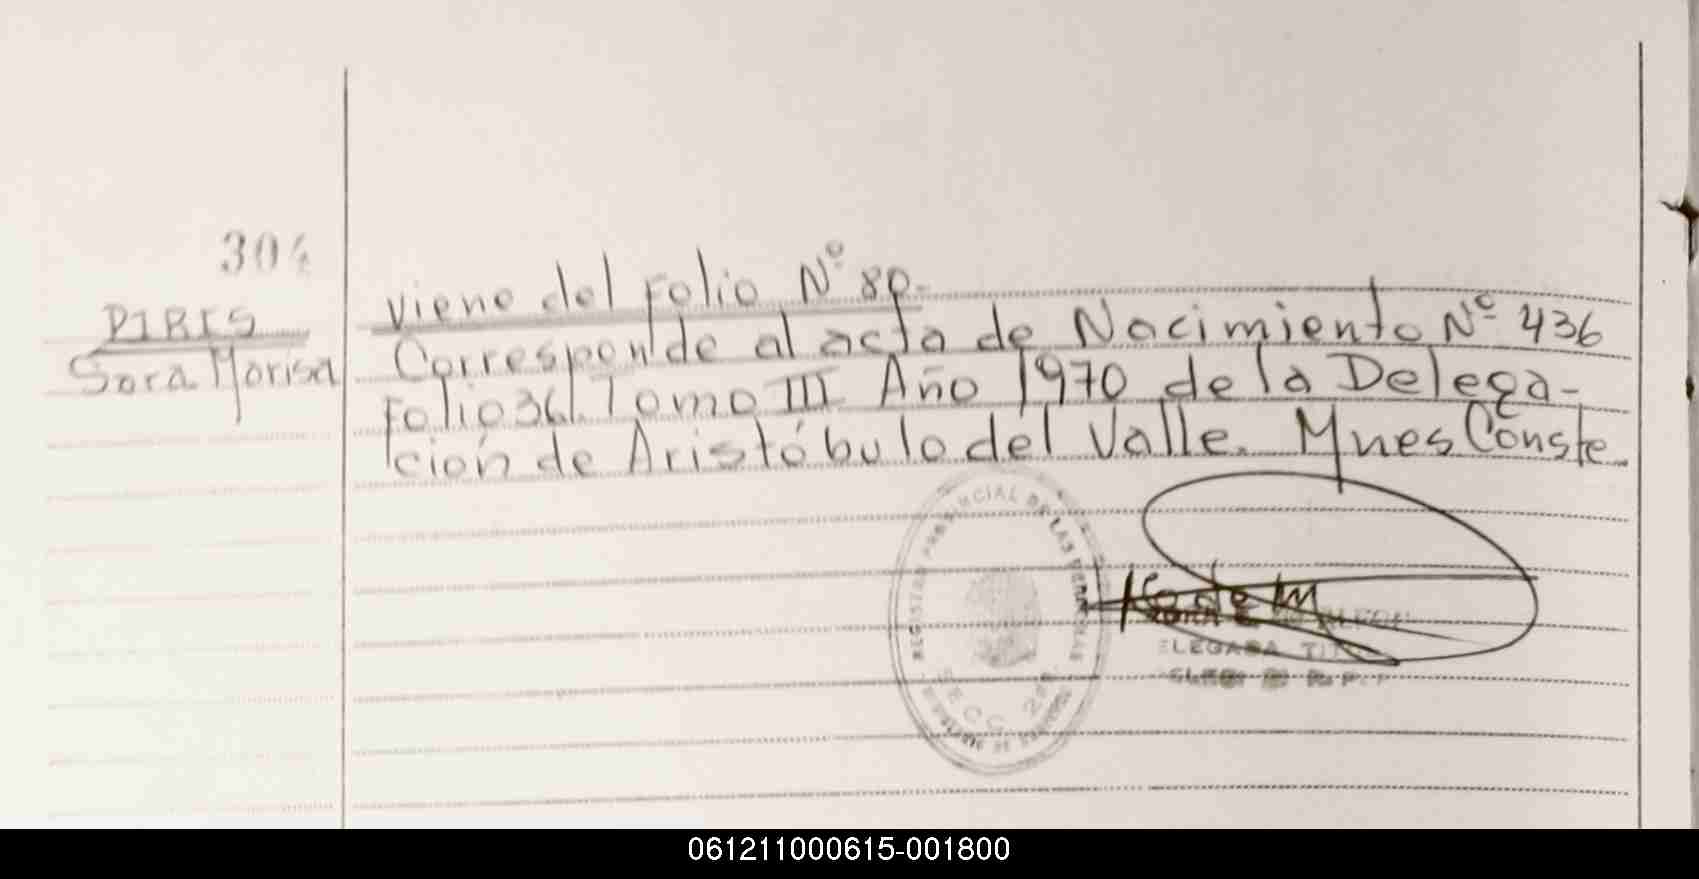 304
PIRIS
Sara Marisa
viene del Folio Nº 80.
Corresponde al acta de Nacimiento Nº 436
Folio 36 Tomo III Año 1970 de la Delega-
ción de Aristóbulo del Valle. Mnes Conste
REGISTRO PROVINCIAL DE LAS PERSONAS
SECC.
TIT
061211000615-001800